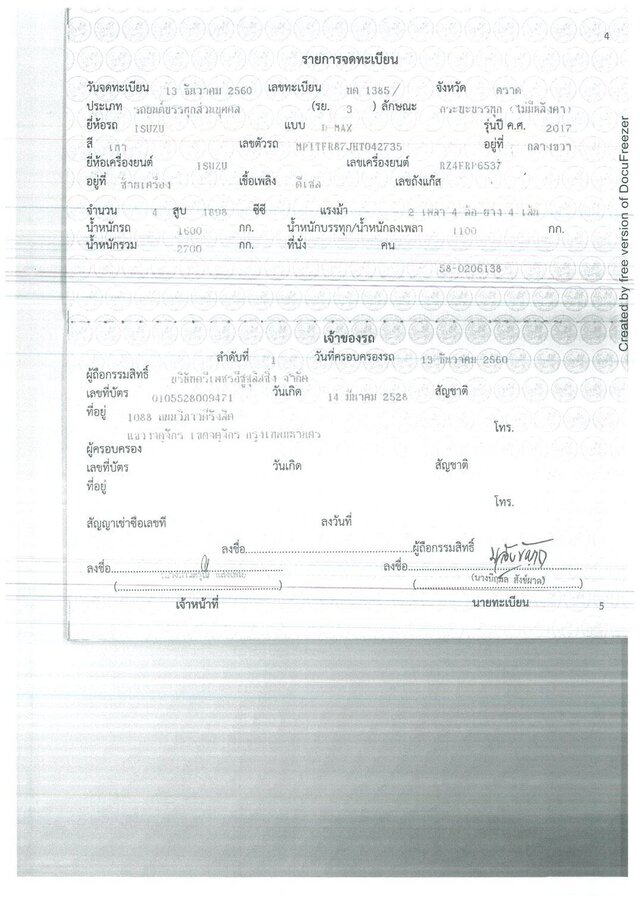 4
รายการจดทะเบียน
วันจดทะเบียน 13 ธันวาคม 2560 เลขทะเบียน 1385/ จังหวัด ตราด
ประเภท รถยนต์บรรทุกส่วนบุคคล (รย. 3 ) ลักษณะ กระบะบรรทุก (ไม่มีหลังคา)
ยี่ห้อรถ ISUZU แบบ D-MAX รุ่นปี ค.ศ. 2017
สี เทา เลขตัวรถ MP1TFR87JHT042735 อยู่ที่ กลางขวา
ยี่ห้อเครื่องยนต์ ISUZU เลขเครื่องยนต์ RZ4FRP6537
อยู่ที่ ซ้ายเครื่อง เชื้อเพลิง ดีเซล เลขถังแก๊ส
จำนวน 4 สูบ 1898 ซีซี แรงม้า 2 เพลา 4 ล้อ ยาง 4 เส้น
น้ำหนักรถ 1600 กก. น้ำหนักบรรทุก/น้ำหนักลงเพลา 1100 กก.
น้ำหนักรวม 2700 กก. ที่นั่ง คน
58-0206138
เจ้าของรถ
ลำดับที่ 1 วันที่ครอบครองรถ 13 ธันวาคม 2560
ผู้ถือกรรมสิทธิ์ บริษัทตรีเพชรอีซูซุลิสซิ่ง จำกัด
เลขที่บัตร 0105528009471 วันเกิด 14 มีนาคม 2528 สัญชาติ
ที่อยู่ 1088 ถนนวิภาวดีรังสิต
แขวงจตุจักร เขตจตุจักร กรุงเทพมหานคร
โทร.
ผู้ครอบครอง
เลขที่บัตร วันเกิด สัญชาติ
ที่อยู่
โทร.
สัญญาเช่าซื้อเลขที่ ลงวันที่
ลงชื่อ ผู้ถือกรรมสิทธิ์
ลงชื่อ ลงชื่อ
เจ้าหน้าที่ นายทะเบียน
5
Created by free version of DocuFreezer